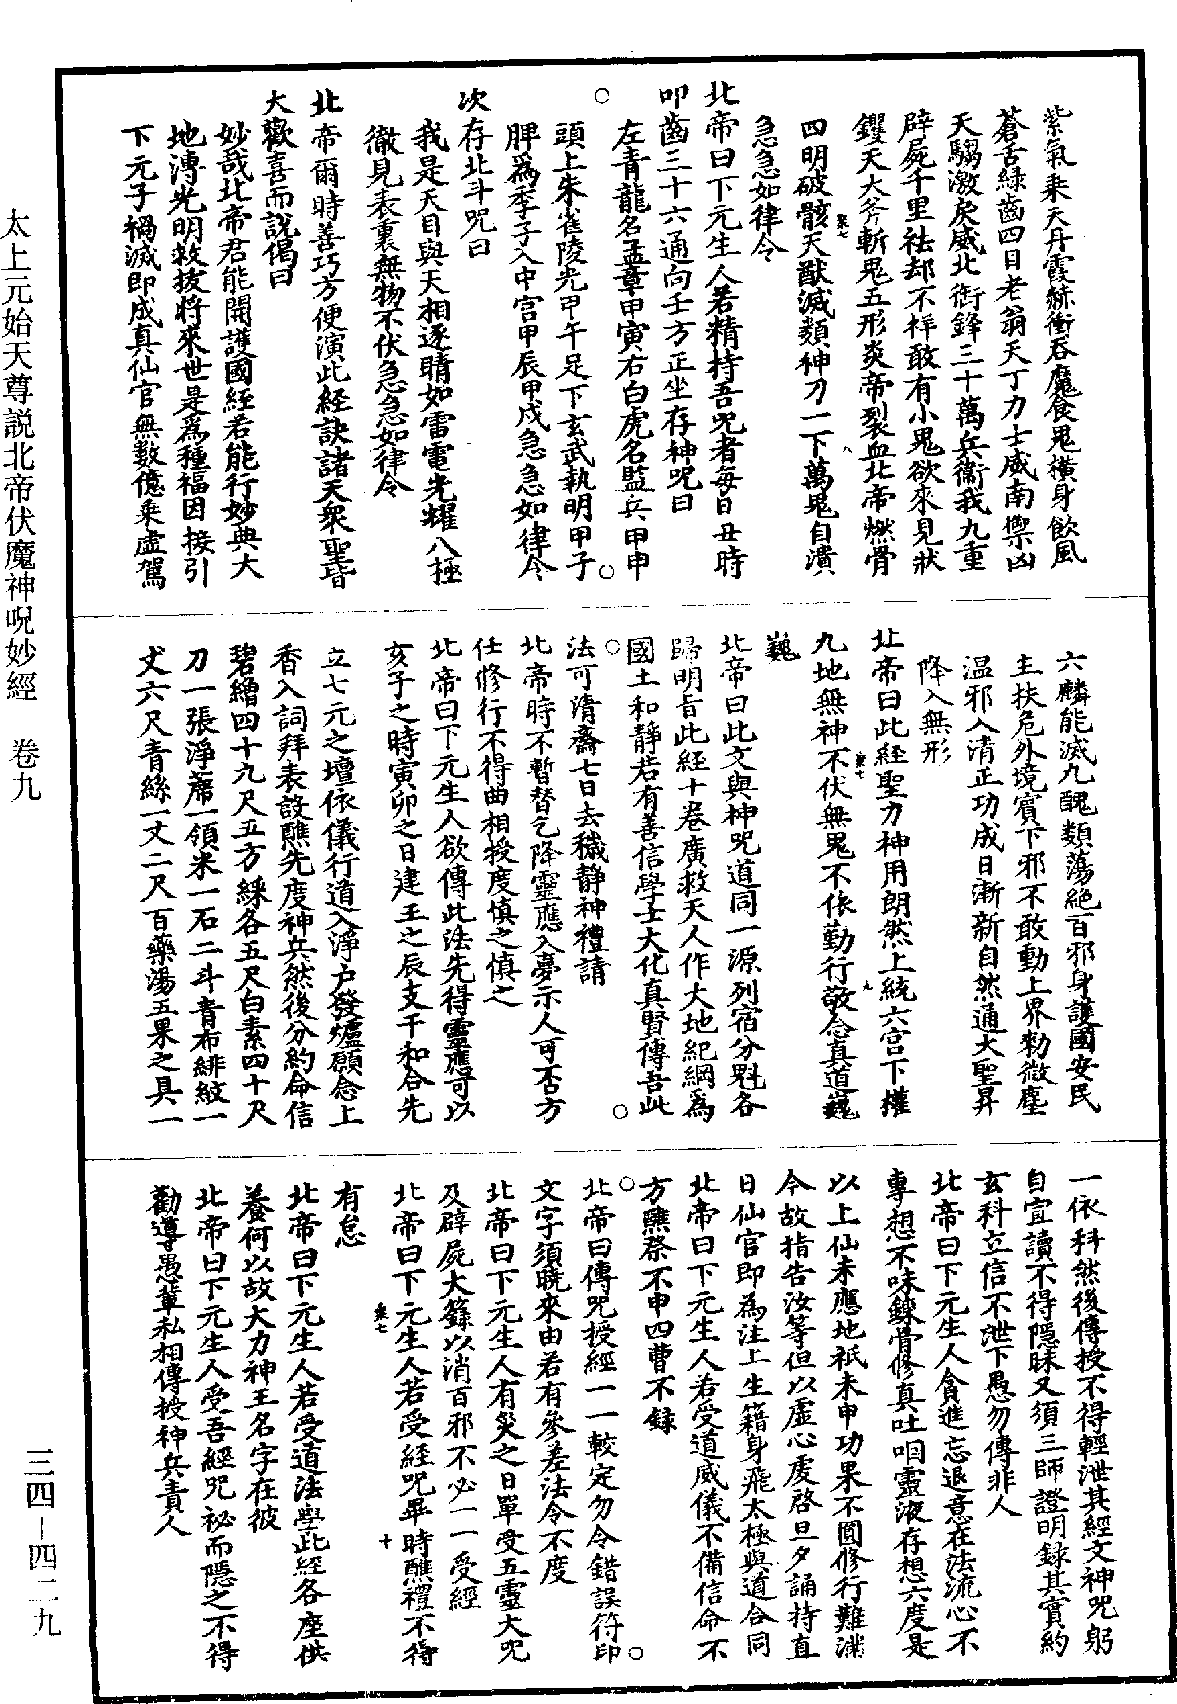 紫氣乘天丹霞赫衝吞魔食鬼橫身飲風
蒼舌綠齒四目老翁天丁力士威南禦凶
天騶激戾威北銜鋒三十萬兵衛我九重
辟屍千里袪却不祥敢有小鬼欲來見狀
钁天大斧斬鬼五形炎帝裂血北帝燃骨
四明破骸天猷滅類神刀一下萬鬼自潰
急急如律令
北帝曰下元生人若精持吾咒者每日丑時
叩齒三十六通向壬方正坐存神咒曰
左青龍名孟章甲寅右白虎名監兵甲申
頭上朱雀陵光甲午足下玄武執明甲子
脾為季子入中宮甲辰甲戌急急如律令
次存北斗咒曰
我是天目與天相逐睛如雷電光耀八極
徹見表裏無物不伏急急如律令
北帝爾時善巧方便演此經訣諸天衆聖皆
大歡喜而說偈曰
妙哉北帝君能開護國經若能行妙典大
地溥光明救拔將來世是為種福因接引
下元子禍滅即成真仙官無數億乘虛駕
六麟能滅九醜類蕩絕百邪身護國安民
主扶危外境賓下邪不敢動上界勑微塵
温邪入清正功成日漸新自然通大聖昇
降入無形
北帝曰此經聖力神用朗然上統六宮下權
九地無神不伏無鬼不依勤行敬念真道巍
巍
北帝曰此文與神咒道同一源列宿分野各
歸明旨此經十卷廣救天人作大地紀綱為
國土和靜若有善信學士大化真賢傳吾此
法可清齋七日去穢靜神禮請
北帝時不暫替乞降靈應入夢示人可否方
任修行不得曲相授度慎之慎之
北帝曰下元生人欲傳此法先得靈應可以
亥子之時寅卯之日建王之辰支干和合先
立七元之壇依儀行道入淨户發爐願念上
香入詞拜表設醮先度神兵然後分約命信
碧繒四十九尺五方綵各五尺白素四十尺
刀一張淨蓆一領米一石二斗青布緋紋一
丈六尺青絲一丈二尺百藥湯五果之具一
一依科然後傳授不得輕泄其經文神咒躬
自宣讀不得隱昧又須三師證明錄其實約
玄科立信不泄下愚勿傳非人
北帝曰下元生人貪進忘退意在法流心不
專想不味鍊骨修真吐咽靈液存想六度是
以上仙未應地祇未申功果不圓修行難滿
今故指告汝等但以虛心虔啓旦夕誦持直
日仙官即為注上生籍身飛太極與道合同
北帝曰下元生人若受道威儀不備信命不
方醮祭不申四曹不錄
北帝曰傳咒授經一一較定勿令錯誤符印
文字須曉來由若有參差法令不度
北帝曰下元生人有災之日單受五靈大咒
及辟屍大籙以消百邪不必一一受經
北帝曰下元生人若受經咒畢時醮禮不得
有怠
北帝曰下元生人若受道法學此經各座供
養何以故大力神王名字在彼
北帝曰下元生人受吾經咒祕而隱之不得
勸導愚輩私相傳授神兵責人
太上元始天尊説北帝伏魔神呪妙經　卷九
三四－四二九